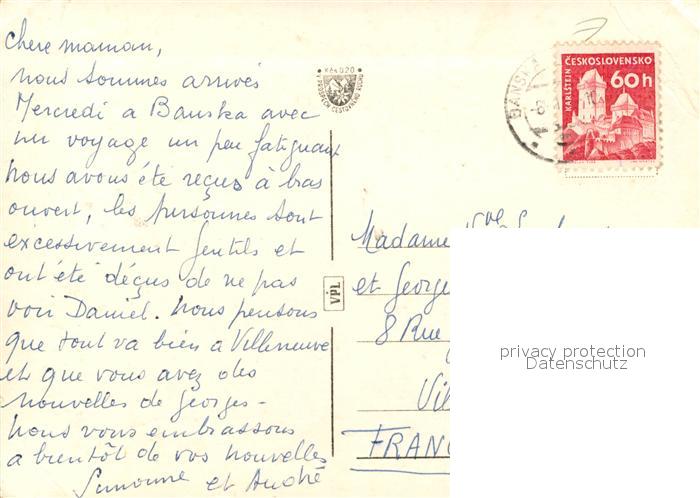 Chere maman,
nous sommes arrivés
Mercredi a Banska avec
un voyage un peu fatiguant
nous avons été reçus à bras
ouvert, les personnes sont
excessivement gentils et
ont été déçus de ne pas
voir Daniel. Nous pensons
que tout va bien à Villeneuve
et que vous avez des
nouvelles de Georges -
nous vous embrassons
a bientôt de vos nouvelles
Simonne et André
K64020
VPL
BANSKÁ
KARLŠTEJN
ČESKOSLOVENSKO
60h
Madame
et Georges
8 Rue
Vil
FRANC
privacy protection
Datenschutz